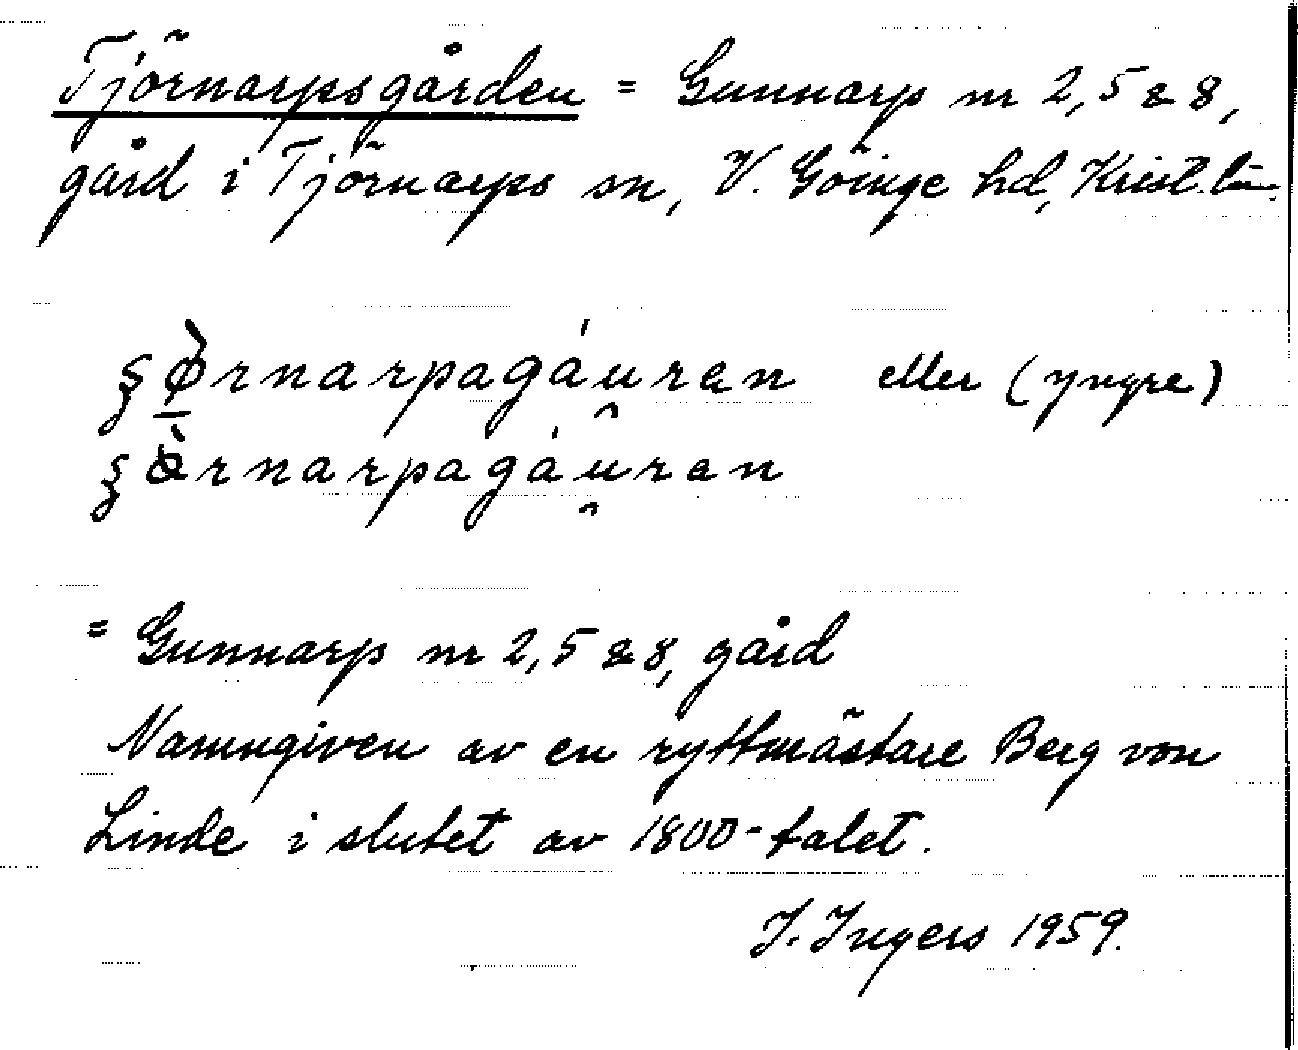 Tjörnarpsgården = Gunnarp nr 2, 5 & 8,
gård i Tjörnarps sn, V. Göinge hd, Krist. län.
ʂø̀rnarpagáu̯ren eller (yngre)
ʂœ̀rnarpagáu̯ren
= Gunnarp nr 2, 5 & 8, gård
Namngiven av en ryttmästare Berg von
Linde i slutet av 1800-talet.
J. Ingers 1959.